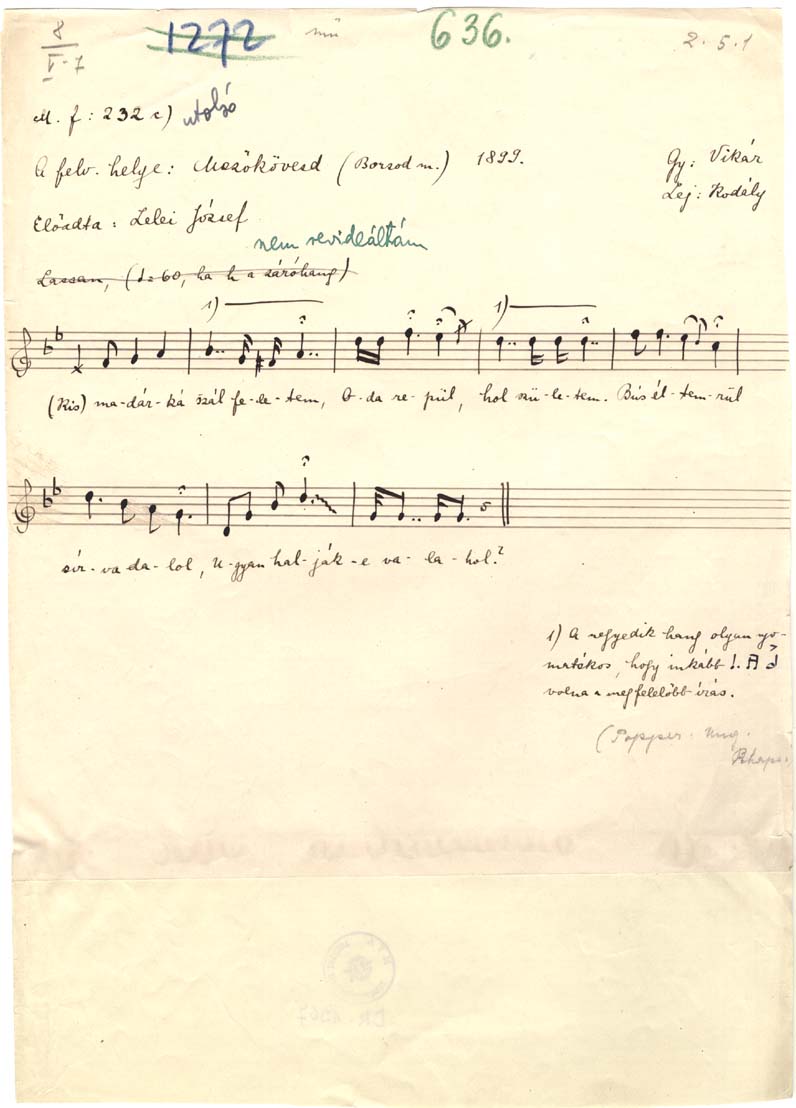 8
V-7
1272
mű
636.
2.5.1
M. f: 232 c) utolsó
A felv. helye: Mezőkövesd (Borsod m.) 1899.
Gy: Vikár
Lej: Kodály
Előadta: Lelei József
nem revideáltam
Lassan, (♩=60, ha h a záróhang)
1)
1)
(Kis) ma-dár-ká szál fe-le-tem, O-da re-pül, hol szü-le-tem. Bús él-tem-rül
sír-va da-lol, U-gyan hal-ják-e va-la-hol?
5
1) A negyedik hang olyan nyo-
matékos, hogy inkább
volna a megfelelőbb írás.
(Popper: Ung.
Rhaps.